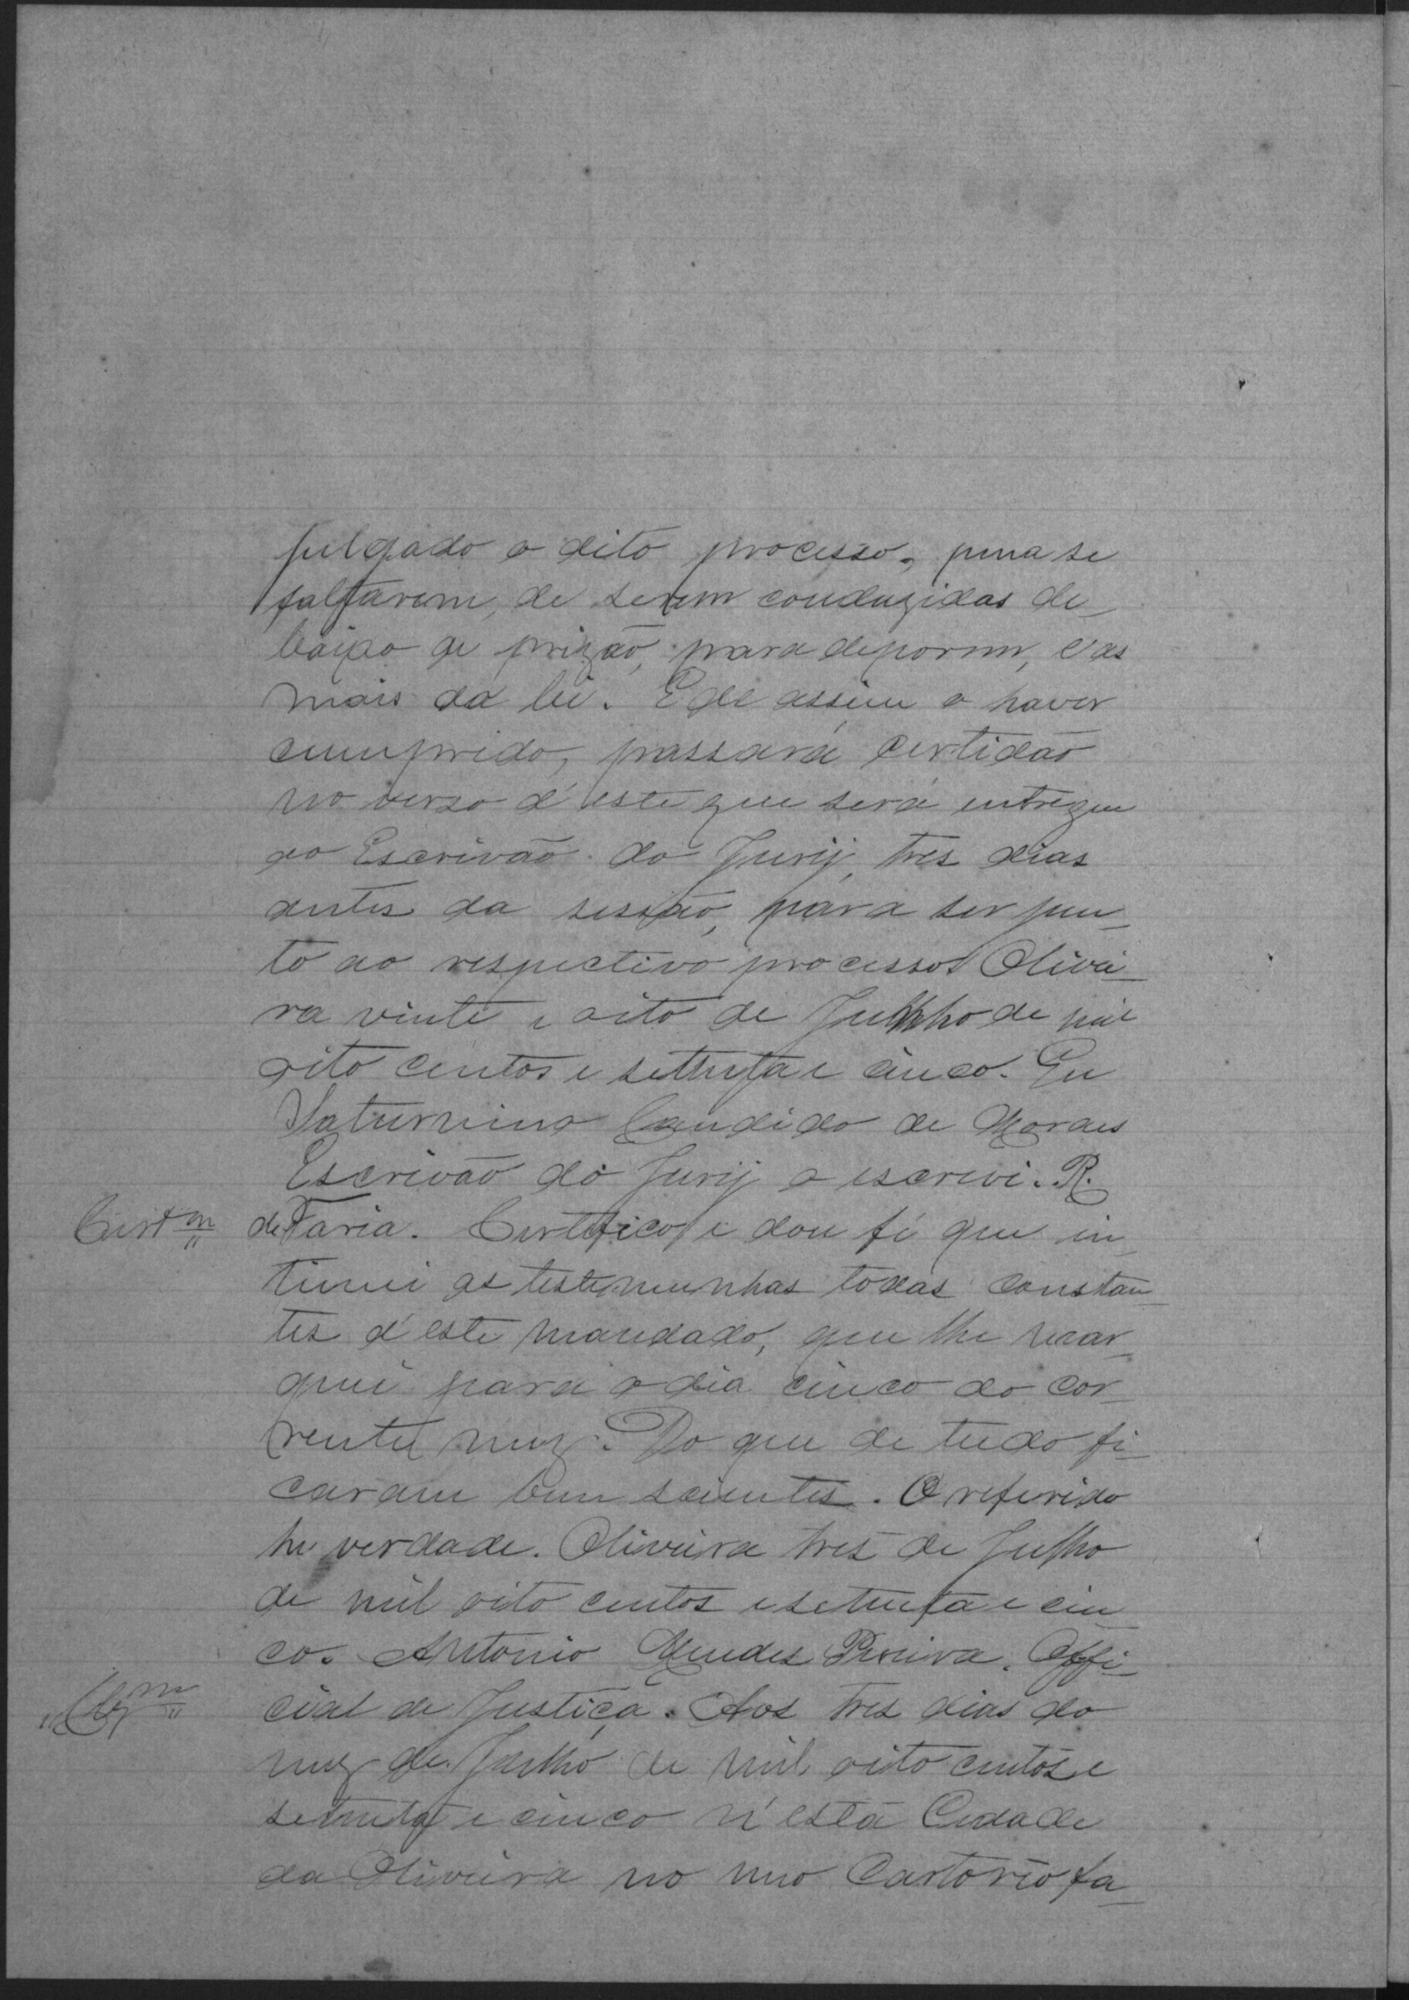 julgado o dito processo, pena se
faltarem, de serem conduzidas de
baixo de prizão, para deporem, e as
mais da lei. E de assim o haver
cumprido, passará certidão
no verso d'este que será entregue
ao Escrivão do Jury, tres dias
antes da sessão, para ser jun
to ao respectivo processo. Olivei
ra vinte e oito de Junho de mil
oito centos e setenta e cinco. Eu
Saturnino Candido de Moraes
Escrivão do Jury o escrevi. R.
Cert.am de Faria. Certifico e dou fé que in
timei as testemunhas todas constan
tes d'este mandado, que lhe mar
quei para o dia cinco do cor
rente mez. Do que de tudo fi
caram bem scientes. O referido
he verdade. Oliveira tres de Julho
de mil oito centos e setenta e cin
co. Antonio Mendes Pereira. Offi
cial de Justiça. Aos tres dias do
mez de Julho de mil oito centos e
setenta e cinco n'esta Cidade
da Oliveira no meo Cartorio fa